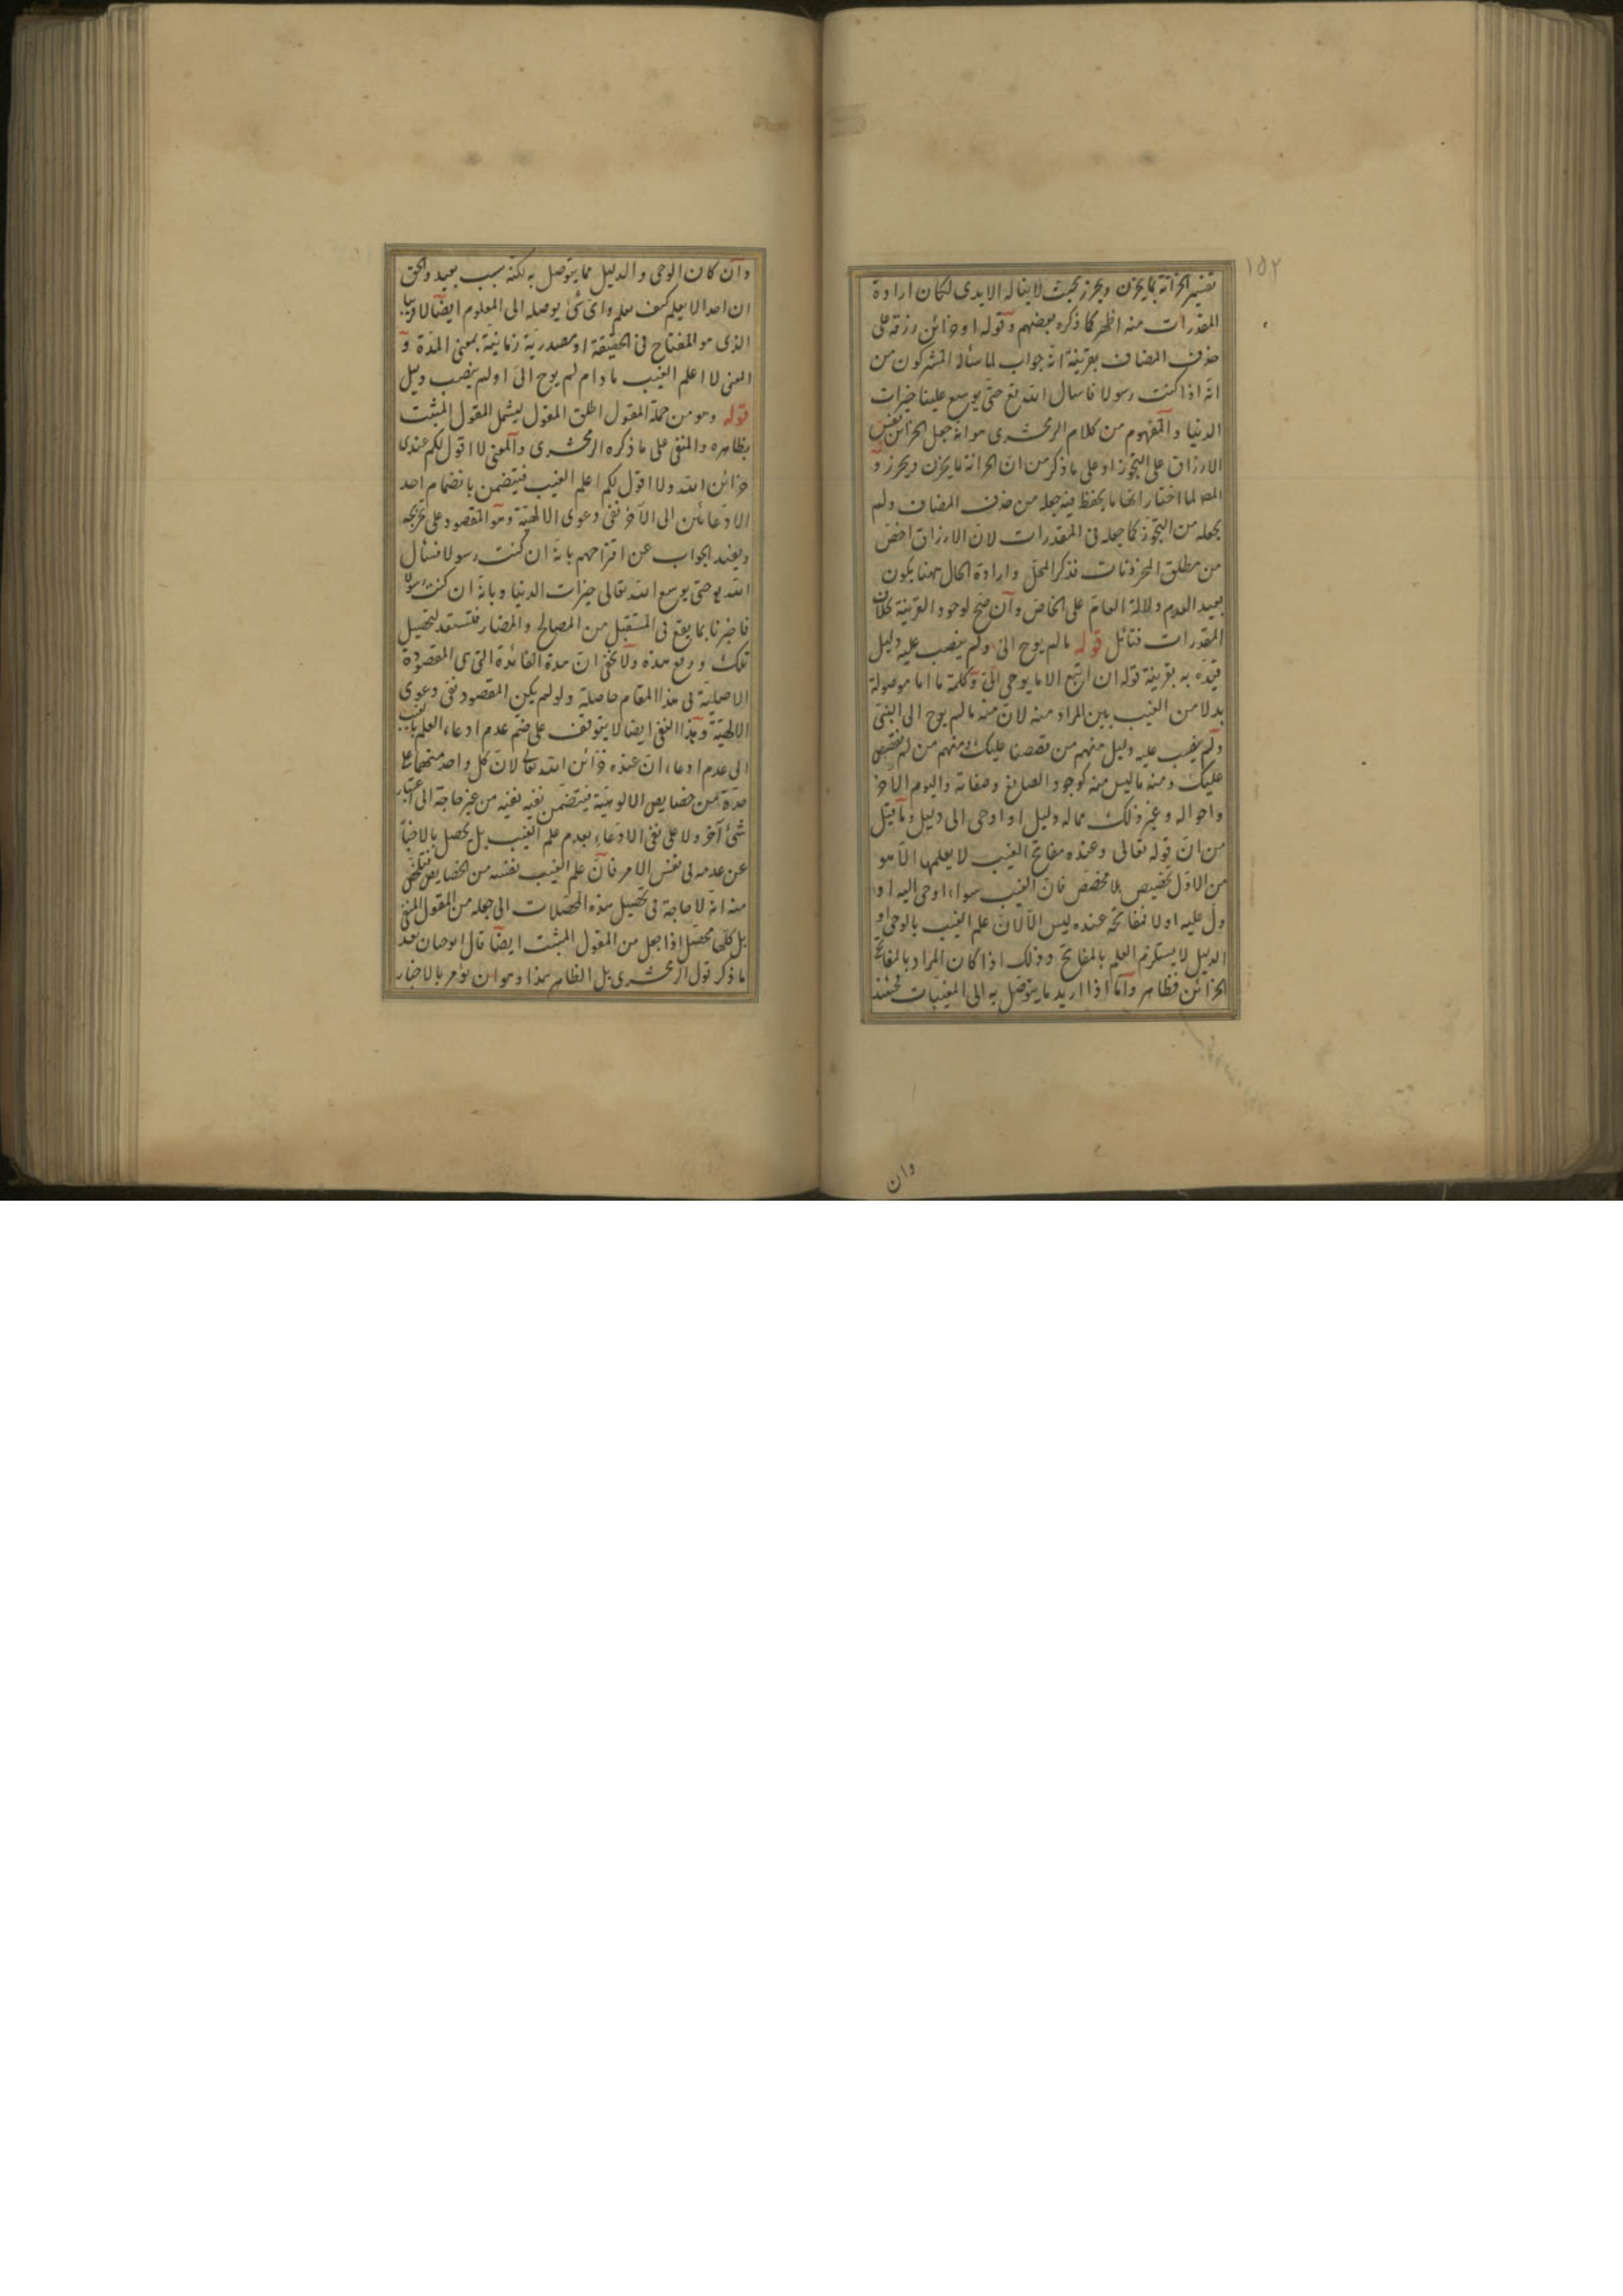 ١٥٢
تفسير الخزانة بما يخزن ويحرز بحيث لا يناله الايدى لكان ارادة
المقدرات منه اظهر كما ذكره بعضهم وقوله او خزائن رزقه على
حذف المضاف بقرينة انه جواب لما سأله المشركون من
انه اذا كنت رسولا فاسال الله تع حتى يوسع علينا خيرات
الدنيا والمفهوم من كلام الزمخشرى هو انه جعل الخزائن نفس
الارزاق على التجوز او على ما ذكر من ان الخزانة ما يخزن ويحرز و
المص لما اختار انها ما يحفظ فيه جعله من حذف المضاف ولم
يجعله من التجوز كما جعله فى المقدرات لان الارزاق اخص
من مطلق المخزونات فذكر المحل وارادة الحال ههنا يكون
بعيد العدم دلالة العام على الخاص وان صح لوجود القرينة بخلاف
المقدرات فتأمل قوله ما لم يوح الى ولم ينصب عليه دليل
قيده به بقرينة قوله ان اتبع الا ما يوحى الى وكلمة ما اما موصولة
بدلا من الغيب يبين المراد منه لان منه ما لم يوح الى النبى
ولم ينصب عليه دليل منهم من قصصنا عليك ومنهم من لم نقصص
عليك ومنه ما ليس منه كوجود الصانع وصفاته واليوم الآخر
واحواله وغير ذلك مما له دليل او اوحى الى دليل وما قيل
من ان قوله تعالى وعنده مفاتح الغيب لا يعلمها الا هو
من الاول تخصيص بلا مخصص فان الغيب سواء اوحى اليه او
دل عليه اولا فمفاتحه عنده ليس الا لان علم الغيب بالوحى او
الدليل لا يستلزم العلم بالمفاتح وذلك اذا كان المراد بالمفاتح
الخزائن فظاهر واما اذا اريد ما يتوصل به الى المغيبات فحينئذ
وان
وان كان الوحى والدليل مما يتوصل به لكنه سبب بعيد والحق
ان احدا لا يعلم كيف يعلم واى شئ يوصله الى المعلوم ايضا
الذى هو المفتاح فى الحقيقة او مصدرية زمانية بمعنى المدة و
المعنى لا اعلم الغيب ما دام لم يوح الى اولم ينصب دليل
قوله وهو من جملة المقول اطلق المقول ليشمل المقول المثبت
بظاهره والمنفى على ما ذكره الزمخشرى والمعنى لا اقول لكم عندى
خزائن الله ولا اقول لكم اعلم الغيب فيتضمن بانضمام احد
الادعائين الى الآخر نفى دعوى الالهية وهو المقصود على
ويفيد الجواب عن اقتراحهم بانه ان كنت رسولا فسأل
الله حتى يوسع الله تعالى خيرات الدنيا وبانه ان كنت رسولا
فاخبرنا بما يقع فى المستقبل من المصالح والمضار فنستعد لتحصيل
تلك ودفع هذه ولا يخفى ان هذه الفائدة التى هى المقصودة
الاصلية فى هذا المقام حاصلة ولو لم يكن المقصود نفى دعوى
الالهية وهذا النفى ايضا لا يتوقف على ضم عدم ادعاء العلم بالغيب
الى عدم ادعاء ان عنده خزائن الله تعالى لان كل واحد منهما على
حدة من خصايص الالوهية فيتضمن نفيه نفيه من غير حاجة الى اعتبار
شئ آخر ولا على نفى الادعاء بعدم علم الغيب بل يحصل بالاخبار
عن عدمه فى نفس الامر فان علم الغيب نفسه من الخصايص فتلخص
منه انه لا حاجة فى تحصيل هذه المحصلات الى جعله من المقول المنفى
بل كلها محصل اذا جعل من المقول المثبت ايضا قال ابو حيان بعد
ما ذكر قول الزمخشرى بل الظاهر هذا وهو ان يؤمر بالاخبار